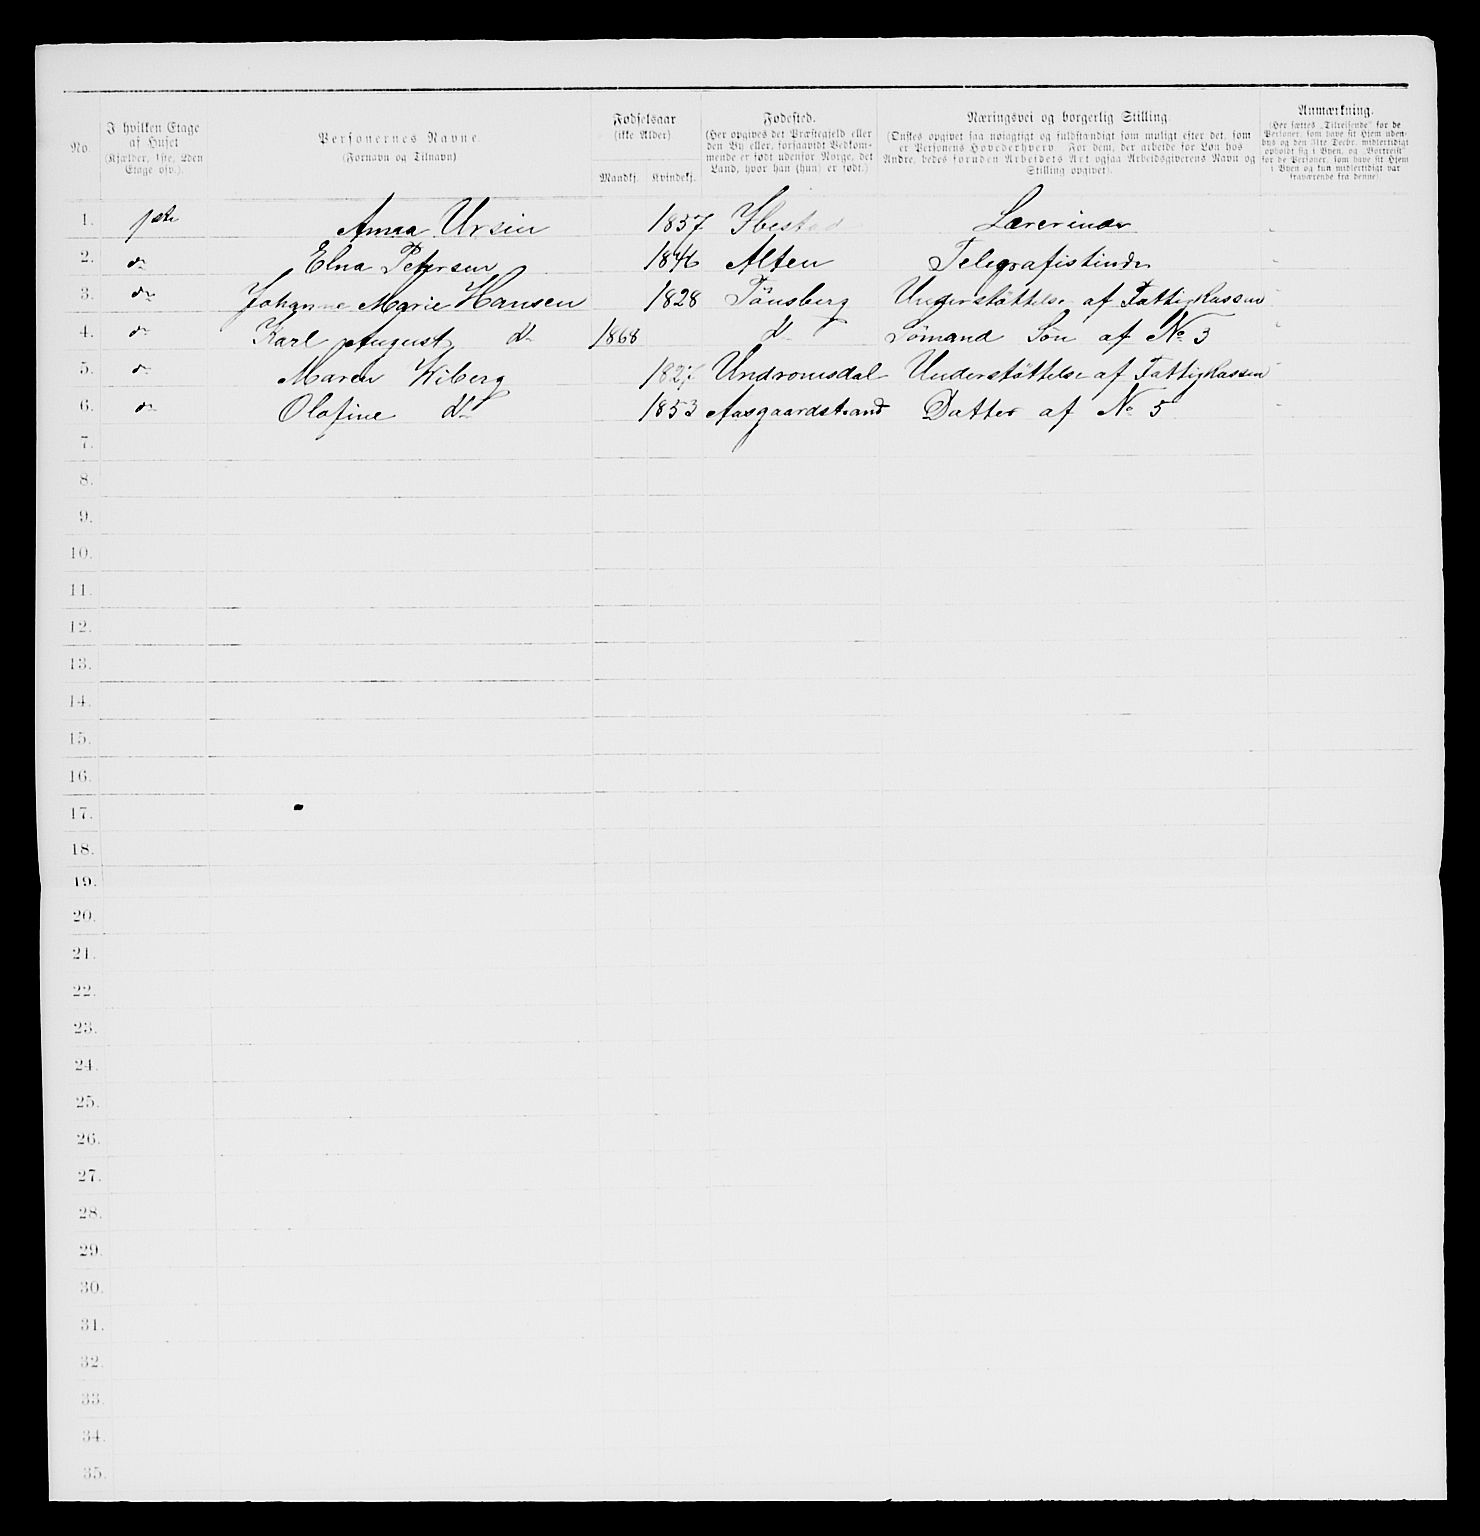 No.
I hvilken Etage af Huset (Kjælder, 1ste, 2den Etage osv.).
Personernes Navne. (Fornavn og Tilnavn)
Fødselsaar (ikke Alder).
Mandkj. Kvindekj.
Fødested. (Her opgives det Præstegjeld eller den By eller, forsaavidt Vedkommende er født udenfor Norge, det Land, hvor han (hun) er født.)
Næringsvei og borgerlig Stilling. (Ønskes opgivet saa nøiagtigt og fuldstændigt som muligt efter det, som er Personens Hovederhverv. For dem, der arbeide for Løn hos Andre, bedes foruden Arbeidets Art ogsaa Arbeidsgiverens Navn og Stilling opgivet).
Anmærkning. (Her sættes „Tilreisende" for de Personer, som have sit Hjem udenbys og den 31te Decbr. midlertidigt opholdt sig i Byen, og „Bortreist" for de Personer, som have sit Hjem i Byen og kun midlertidigt var fraværende fra denne).
1. 1ste Anna Ursin 1837 Ibestad Lærerinde
2. do Elna Petersen 1846 Alten Telegrafistinde
3. do Johanne Marie Hansen 1828 Tönsberg Understöttelse af Fattigkassen
4. do Karl August do 1868 do Sömand Sön af No 3
5. do Maren Wiberg 1827 Undromsdal Understöttelse af Fattigkassen
6. do Olafine do 1853 Aasgaardstrand Datter af No 5
7.
8.
9.
10.
11.
12.
13.
14.
15.
16.
17.
18.
19.
20.
21.
22.
23.
24.
25.
26.
27.
28.
29.
30.
31.
32.
33.
34.
35.